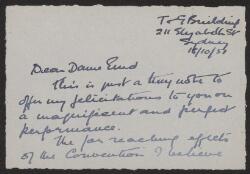 T & G Building
211 Elizabeth St
Sydney
18/10/51
Dear Dame Enid
This is just a tiny note to
offer my felicitations to you on
a magnificent and perfect
performance.
The far reaching effects
of the Convention I believe